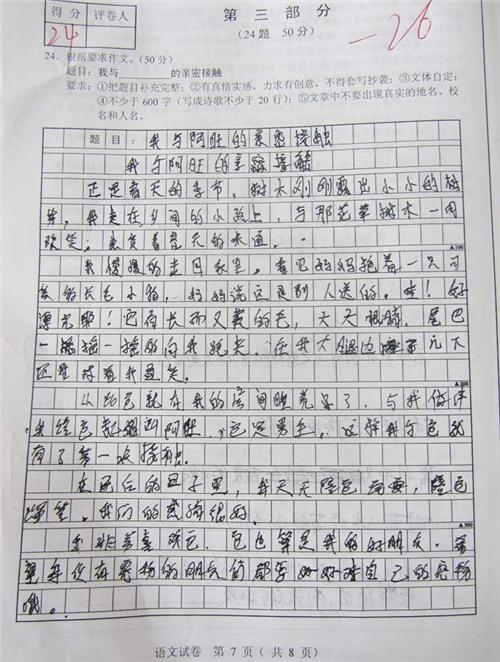 得分 评卷人
24
第三部分
(24题 50分)
-26
24. 根据要求作文。(50分)
题目：我与________的亲密接触
要求：①把题目补充完整；②有真情实感，力求有创意，不得套写抄袭；③文体自定；
④不少于 600 字（写成诗歌不少于 20 行）；⑤文章中不要出现真实的地名、校
名和人名。
题目：我与阿旺的亲密接触
我与阿旺的亲密接触
正是春天的季节，树木刚刚露出小小的树
芽，我走在乡间的小路上，与那花草树木一同
欢笑。感受着春天的味道。
▲100
我慢慢的走回家里，看见妈妈抱着一只可
爱的长毛小狗，妈妈说这是别人送的。哇！好
漂亮耶！它有长而又黄的毛，大大眼睛，尾巴
一摇摇一摇的向我跑来，在我大腿边几下
还对着我笑。
▲200
从此它就在我的房间睡了，与我做伴
我给它起名叫阿旺，它是男生，这样我与它就
有了第一次接触。
在以后的日子里，我天天陪它玩耍，陪它
，我们的感情很好。
▲300
我非常喜欢它，它也算是我的好朋友。希
望养宠物的朋友们都要好好对自己的宠物
哦。
语文试卷 第 7 页（共 8 页）